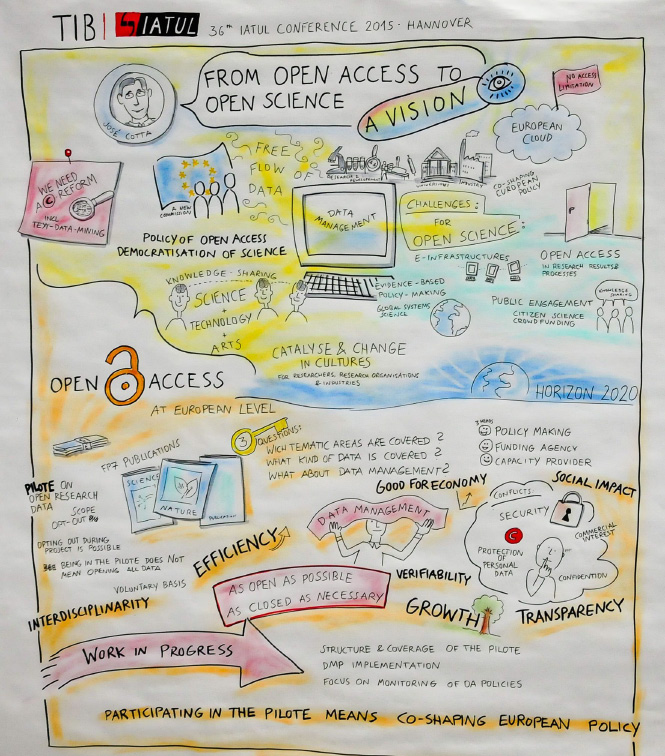 TIB IATUL 36TH IATUL CONFERENCE 2015 - HANNOVER
FROM OPEN ACCESS TO
OPEN SCIENCE
A VISION
JOSÉ COTTA
NO ACCESS
LIMITATION
EUROPEAN
CLOUD
WE NEED
A © REFORM
INCL.
TEXT-DATA-MINING
A NEW
COMMISSION
FREE
FLOW OF
DATA
RESEARCH &
INDUSTRY
CO-SHAPING
EUROPEAN
POLICY
DATA
MANAGEMENT
CHALLENGES:
FOR
OPEN SCIENCE:
POLICY OF OPEN ACCESS
DEMOCRATISATION OF SCIENCE
E-INFRASTRUCTURES
OPEN ACCESS
IN RESEARCH RESULTS &
PROCESSES
KNOWLEDGE-SHARING
SCIENCE
+
TECHNOLOGY
ARTS
EVIDENCE-BASED
POLICY-MAKING
GLOBAL SYSTEMS
SCIENCE
PUBLIC ENGAGEMENT
CITIZEN SCIENCE
CROWDFUNDING
KNOWLEDGE
SHARING
CATALYSE & CHANGE
IN CULTURES
FOR RESEARCHERS, RESEARCH ORGANISATIONS
& INDUSTRIES
HORIZON 2020
OPEN ACCESS
AT EUROPEAN LEVEL
3 QUESTIONS:
WICH TEMATIC AREAS ARE COVERED?
WHAT KIND OF DATA IS COVERED?
WHAT ABOUT DATA MANAGEMENT?
POLICY MAKING
FUNDING AGENCY
CAPACITY PROVIDER
FP7 PUBLICATIONS
SCIENCE
NATURE
PUBLICATION
PILOTE ON
OPEN RESEARCH
DATA
SCOPE
OPT-OUT
OPTING OUT DURING
PROJECT IS POSSIBLE
BEING IN THE PILOTE DOES NOT
MEAN OPENING ALL DATA
VOLUNTARY BASIS
GOOD FOR ECONOMY
SOCIAL IMPACT
DATA MANAGEMENT
EFFICIENCY
CONFLICTS:
SECURITY
COMMERCIAL
INTEREST
C
PROTECTION
OF PERSONAL
DATA
CONFIDENTION
INTERDISCIPLINARITY
AS OPEN AS POSSIBLE
AS CLOSED AS NECESSARY
VERIFIABILITY
GROWTH
TRANSPARENCY
WORK IN PROGRESS
STRUCTURE & COVERAGE OF THE PILOTE
DMP IMPLEMENTATION
FOCUS ON MONITORING OF OA POLICIES
PARTICIPATING IN THE PILOTE MEANS CO-SHAPING EUROPEAN POLICY